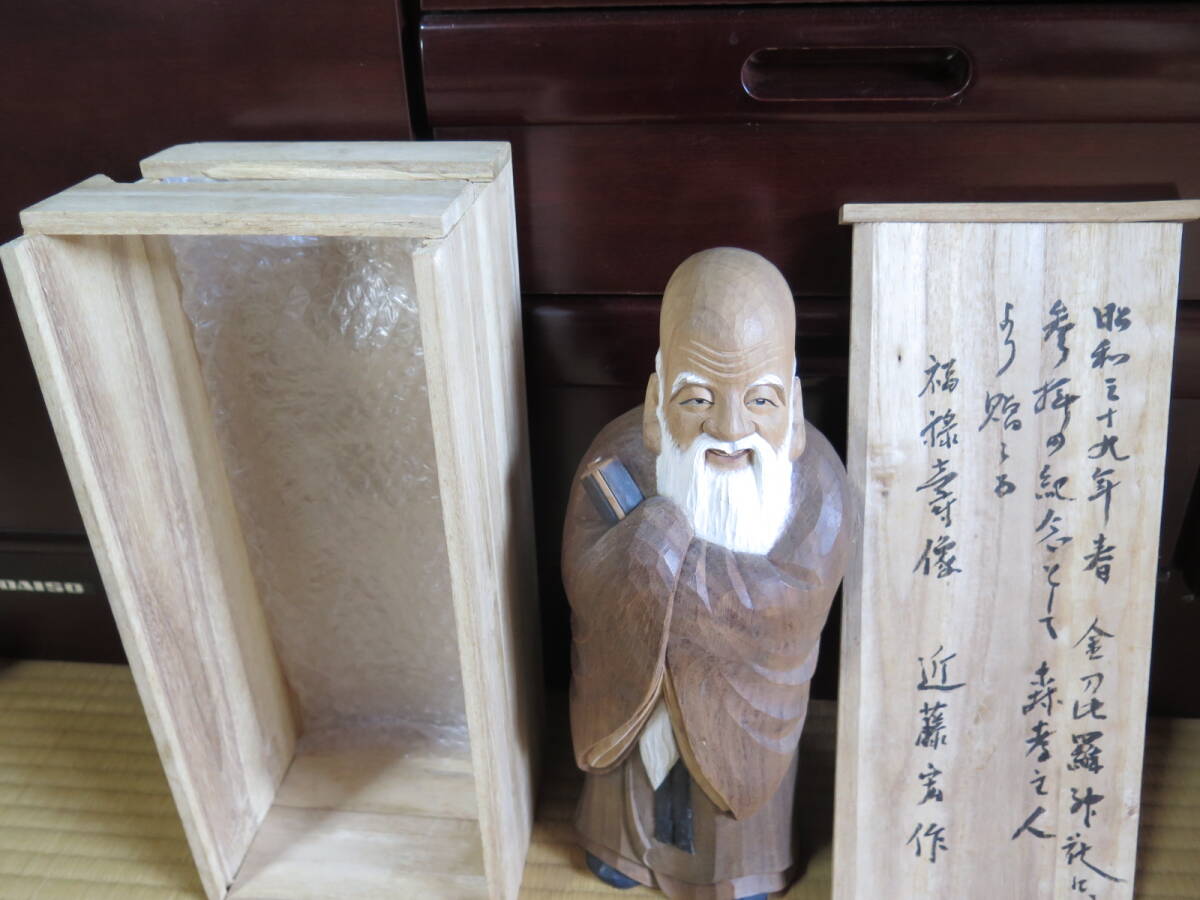 昭和三十九年春 金刀比羅神社に
参拝の紀念として 森孝之人
より贈らる
福禄寿像 近藤宏作
DAISO